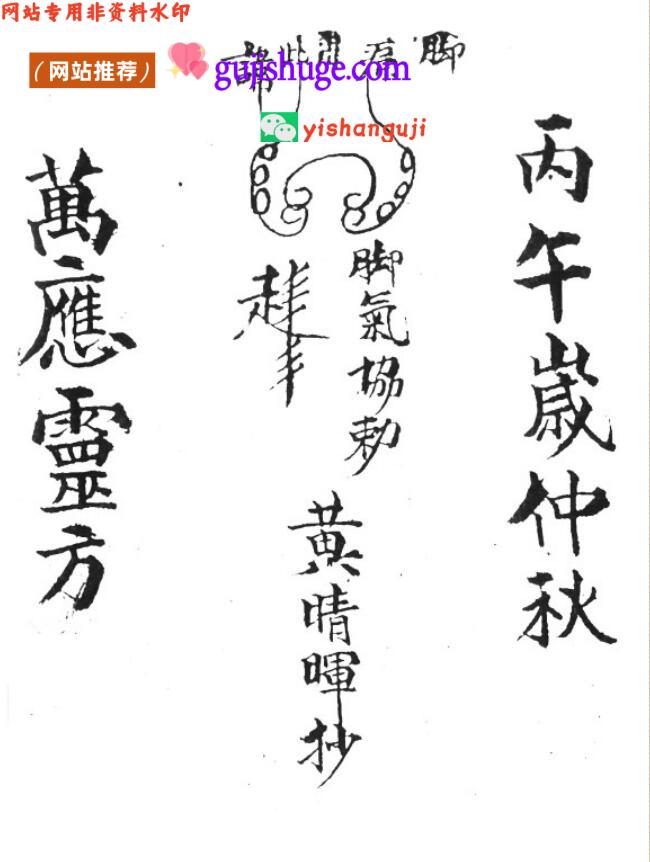 网站专用非资料水印
（网站推荐） gujishuge.com
yishanguji
脚
丙午歲仲秋
脚氣協勅
黄晴暉抄
萬應靈方